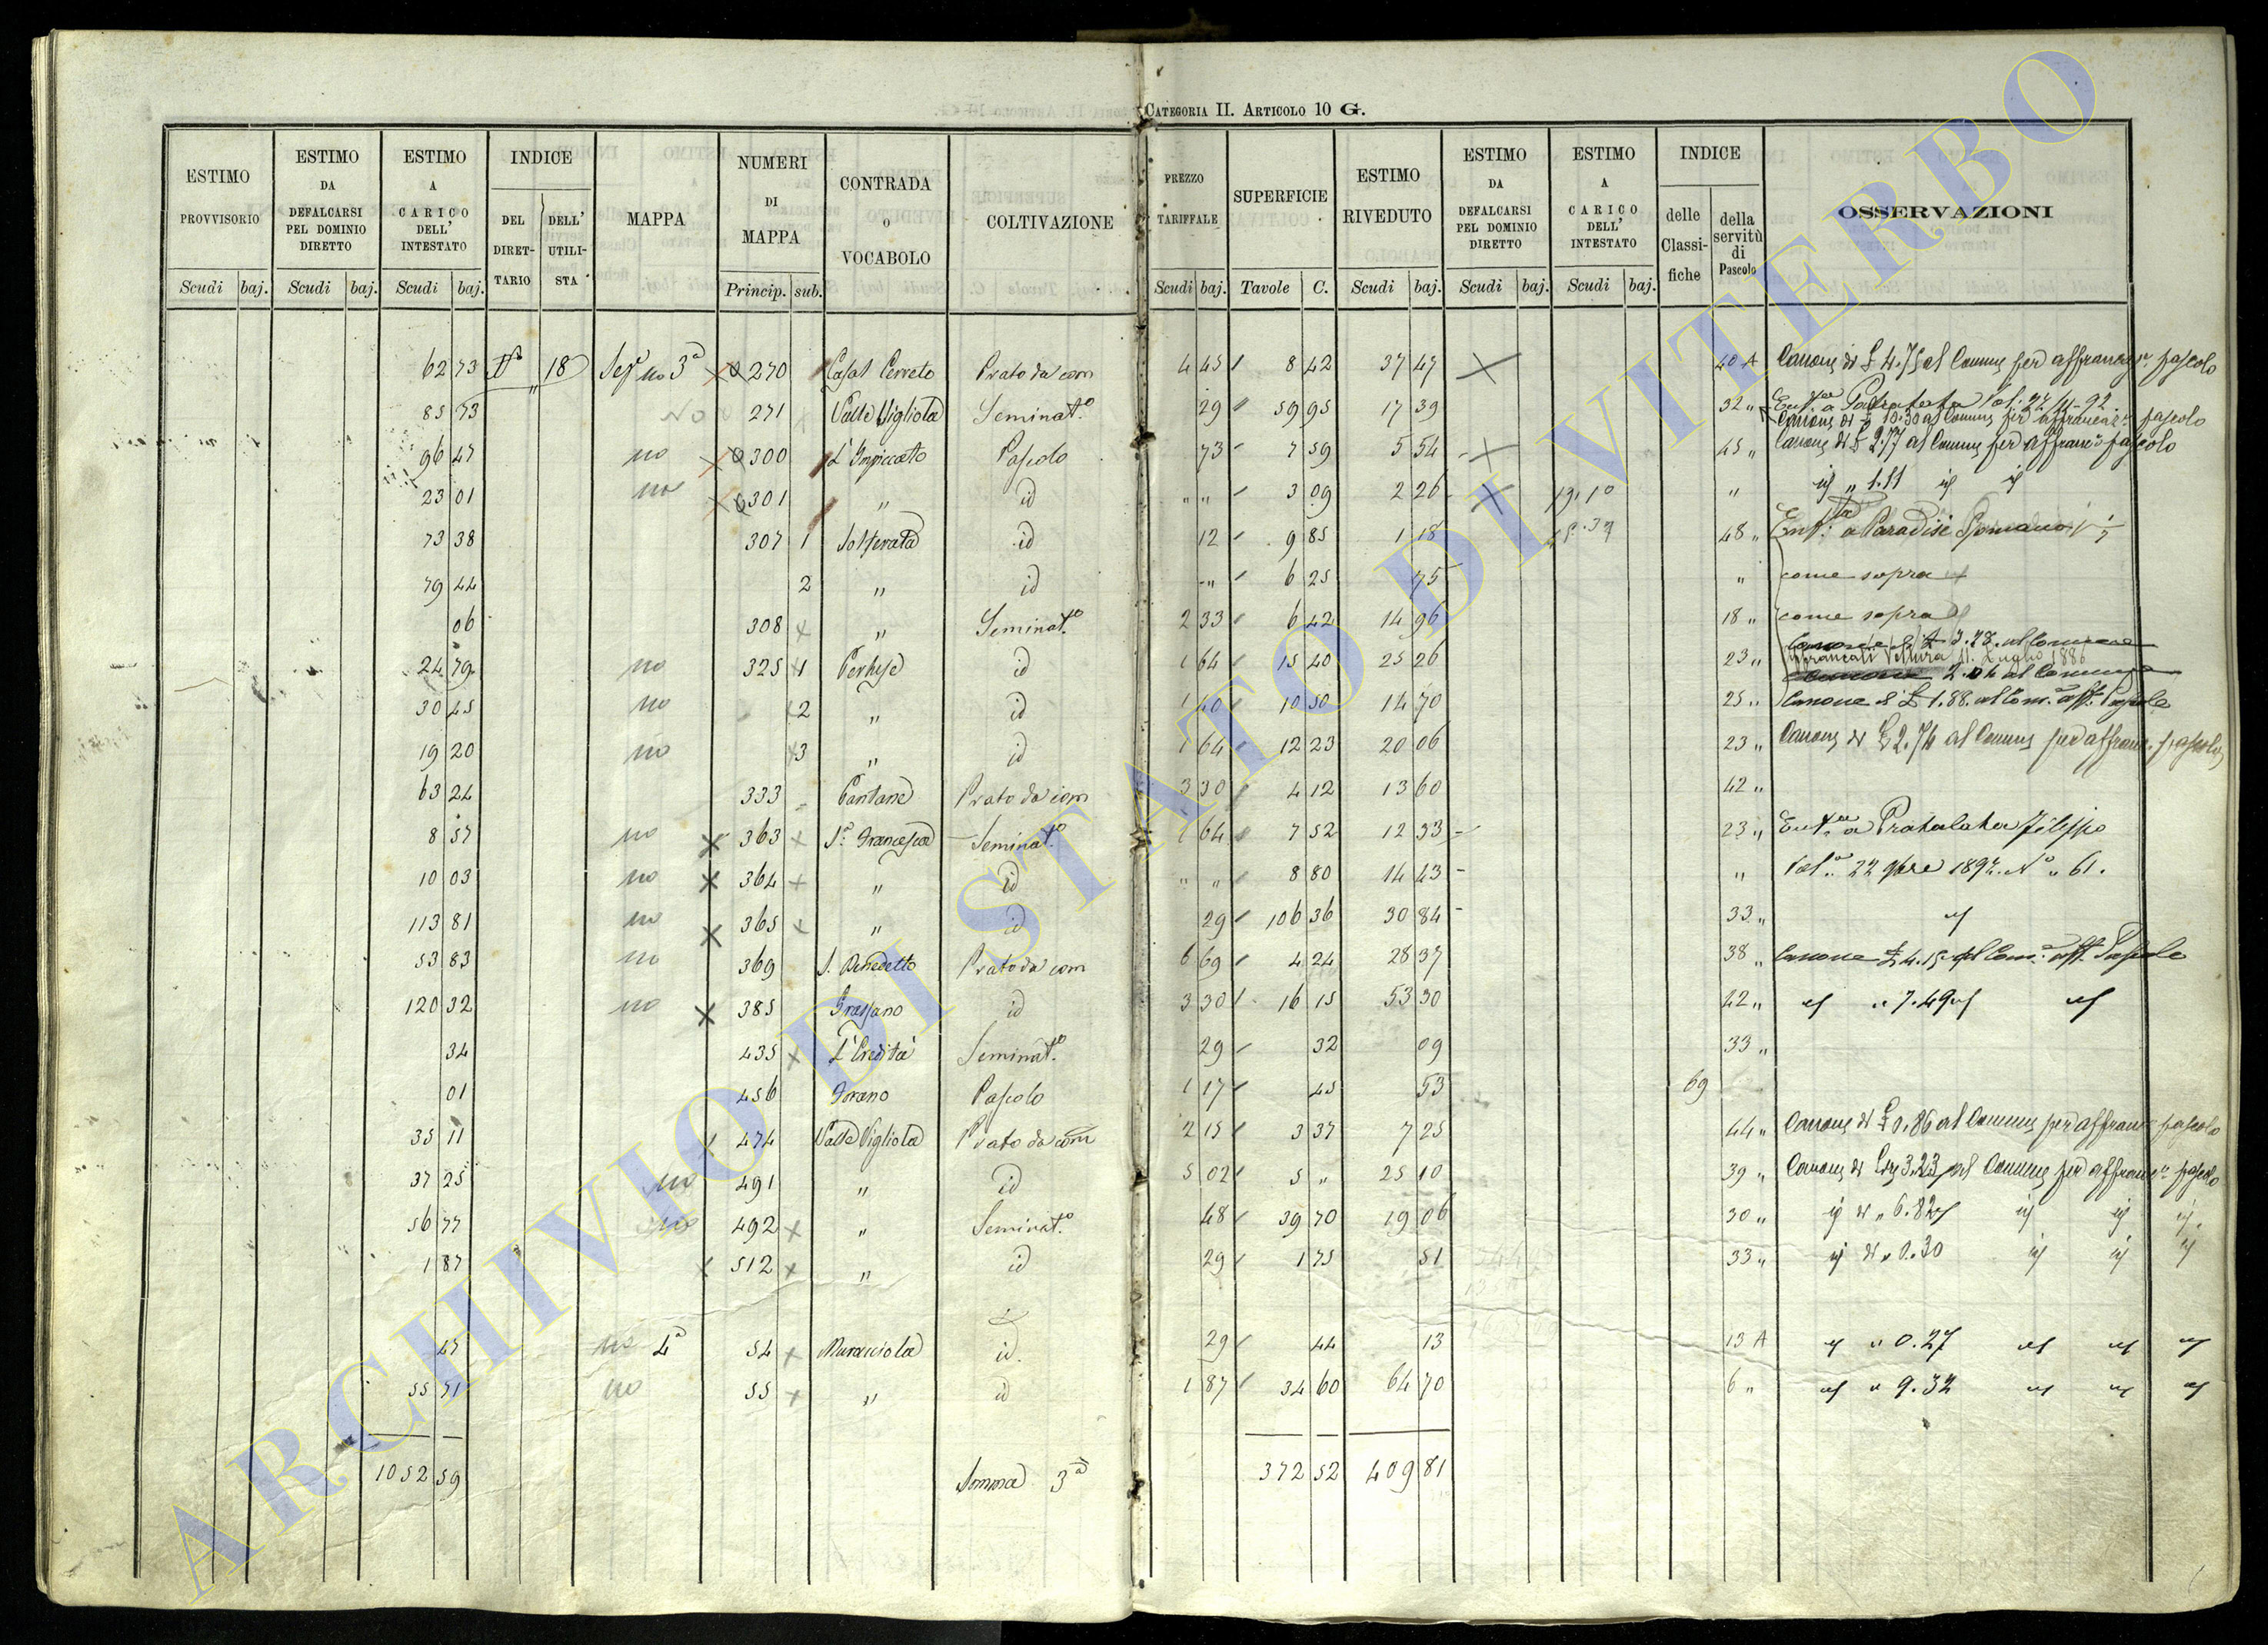 CATEGORIA II. ARTICOLO 10 G.
ESTIMO PROVVISORIO Scudi baj. ESTIMO DA DEFALCARSI PEL DOMINIO DIRETTO Scudi baj. ESTIMO A CARICO DELL' INTESTATO Scudi baj. INDICE DEL DIRETTARIO DELL' UTILISTA MAPPA NUMERI DI MAPPA Princip. sub. CONTRADA O VOCABOLO COLTIVAZIONE PREZZO TARIFFALE Scudi baj. SUPERFICIE Tavole C. ESTIMO RIVEDUTO Scudi baj. ESTIMO DA DEFALCARSI PEL DOMINIO DIRETTO Scudi baj. ESTIMO A CARICO DELL' INTESTATO Scudi baj. INDICE delle Classifiche della servitù di Pascolo OSSERVAZIONI
62 73 18 no 3ª 270 Casal Cerreto Prato da com 4 45 8 42 37 47 40 A Canone di £ 4.75 al Comune per affrancaz. pascolo
85 73 No 271 Valle Vigliola Seminat.º 29 59 95 17 39 32 "
96 47 no 300 L'Impiccato Pascolo 73 7 59 5 54 45 " Canone di £ 2.77 al Comune per affranc. pascolo
23 01 no 301 " id " " 3 09 2 26 " id " 1.11 id id
73 38 307 1 Solferata id 12 9 85 1 18 48 " Enf. a Paradisi Romano
79 44 2 " id " 6 25 75 " come sopra
06 308 " Seminat.º 2 33 6 42 14 96 18 " come sopra
24 79 no 325 1 id 1 64 15 40 25 26 23 "
30 45 no 2 " id 1 40 10 50 14 70 25 " Canone di £ 1.88. al Com. aff. Pascolo
19 20 no 3 " id 1 64 12 23 20 06 23 " Canone di £ 2.74 al Comune per affranc. pascolo
63 24 333 Pantane Prato da com 3 30 4 12 13 60 42 "
8 57 no 363 S. Francesca Seminat.º 1 64 7 52 12 33 23 "
10 03 no 364 " id " " 8 80 14 43 " 22 9bre 1892. Nº 61.
113 81 no 365 " id 29 106 36 30 84 33 " id
53 83 no 369 S. Benedetto Prato da com 6 69 4 24 28 37 38 " Canone £ 4.15 al Com. aff. Pascolo
120 32 no 385 id 3 30 16 15 53 30 42 " id " 7.49 id id
34 435 L'Eredità Seminat.º 29 32 09 33 "
01 456 Pascolo 1 17 45 53 69
35 11 474 Valle Vigliola Prato da com 2 15 3 37 7 25 44 " Canone di £ 0.86 al Comune per affranc. pascolo
37 25 no 491 " id 5 02 5 " 25 10 39 " Canone di Lire 3.23 al Comune per affranc. pascolo
56 77 no 492 " Seminat.º 48 39 70 19 06 30 " id di " 6.82 id id id
1 87 512 " id 29 1 75 51 33 " id di " 0.30 id id id
47 no 4ª 54 Muracciola id. 29 44 13 13 A id " 0.27 id id id
55 71 no 55 " id 1 87 34 60 64 70 6 " id " 9.32 id id id
1052 59 Somma 3ª 372 52 409 81
ARCHIVIO DI STATO DI VITERBO